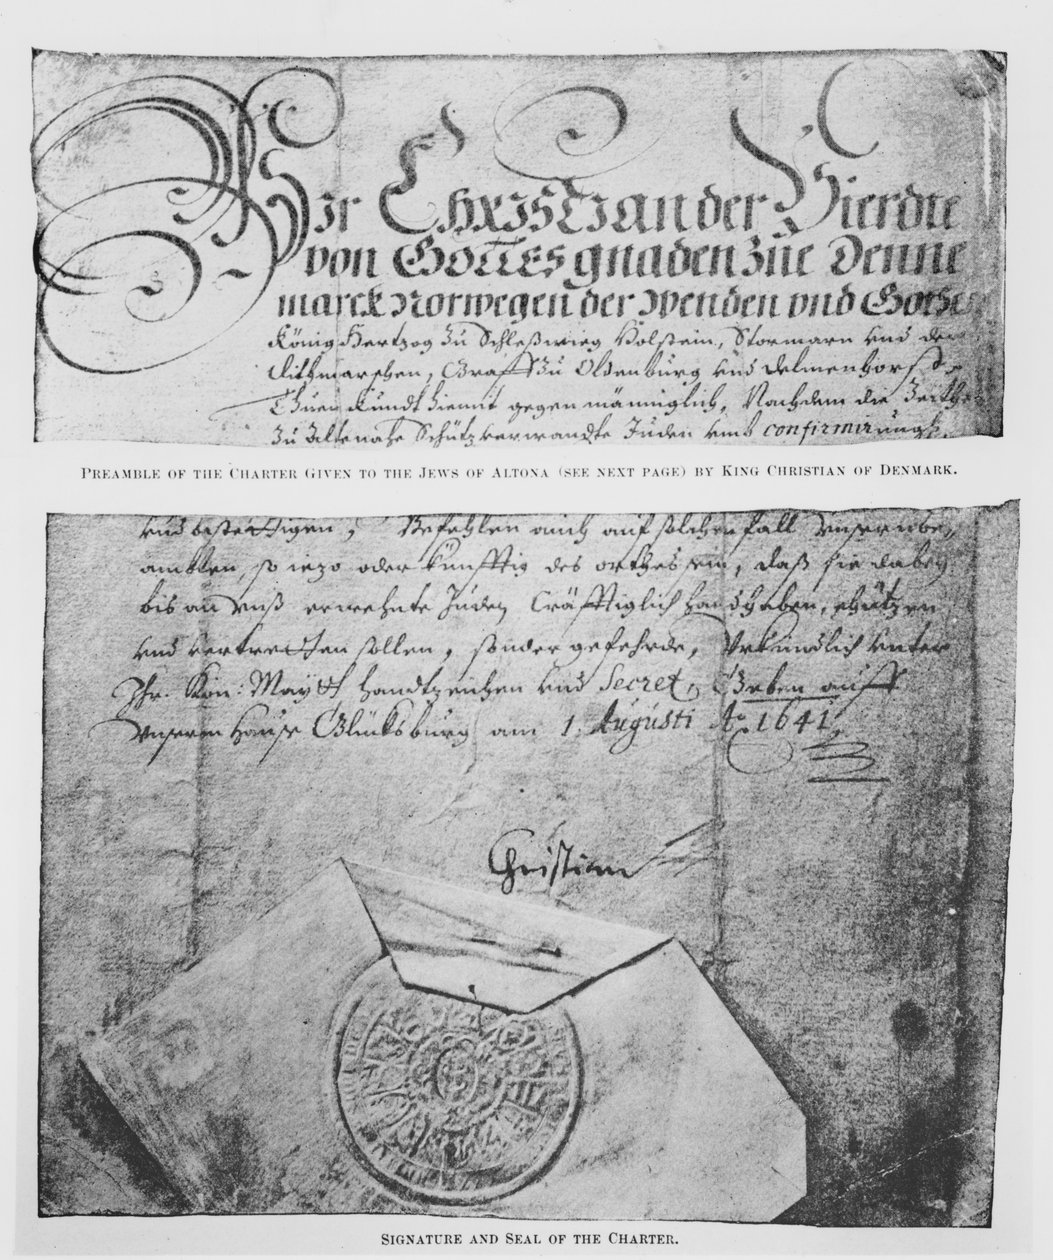 Wir Christian der Vierdte
von Gottes gnaden zue Denne
marck Norwegen der Wenden vnd Gothen
König Hertzog zu Schleßwieg Holstein, Stormarn vnd der
Dithmarschen, Graff zu Oldenburg vnd Delmenhorst
Thuen kundt hiemit gegen männiglich, Nachdem die
zu Altenahe Schützverwandte Juden vmb confirmir
PREAMBLE OF THE CHARTER GIVEN TO THE JEWS OF ALTONA (SEE NEXT PAGE) BY KING CHRISTIAN OF DENMARK.
vnd bestettigen, Befehlen auch auf solchen fall vnsern be,,
ambten, so iezo oder künfftig des orthes sein, daß sie dabey
bis an vnß erwehnte Juden kräfftiglich handhaben, schützen
vnd vertretten sollen, sonder gefehrde, Vrkündlich vnter
Ihr. Kön: Maytt handtzeichen vnd Secret, Geben auff
vnserm hause Glücksburg am 1. Augusti Ao 1641.
Christian
SIGNATURE AND SEAL OF THE CHARTER.